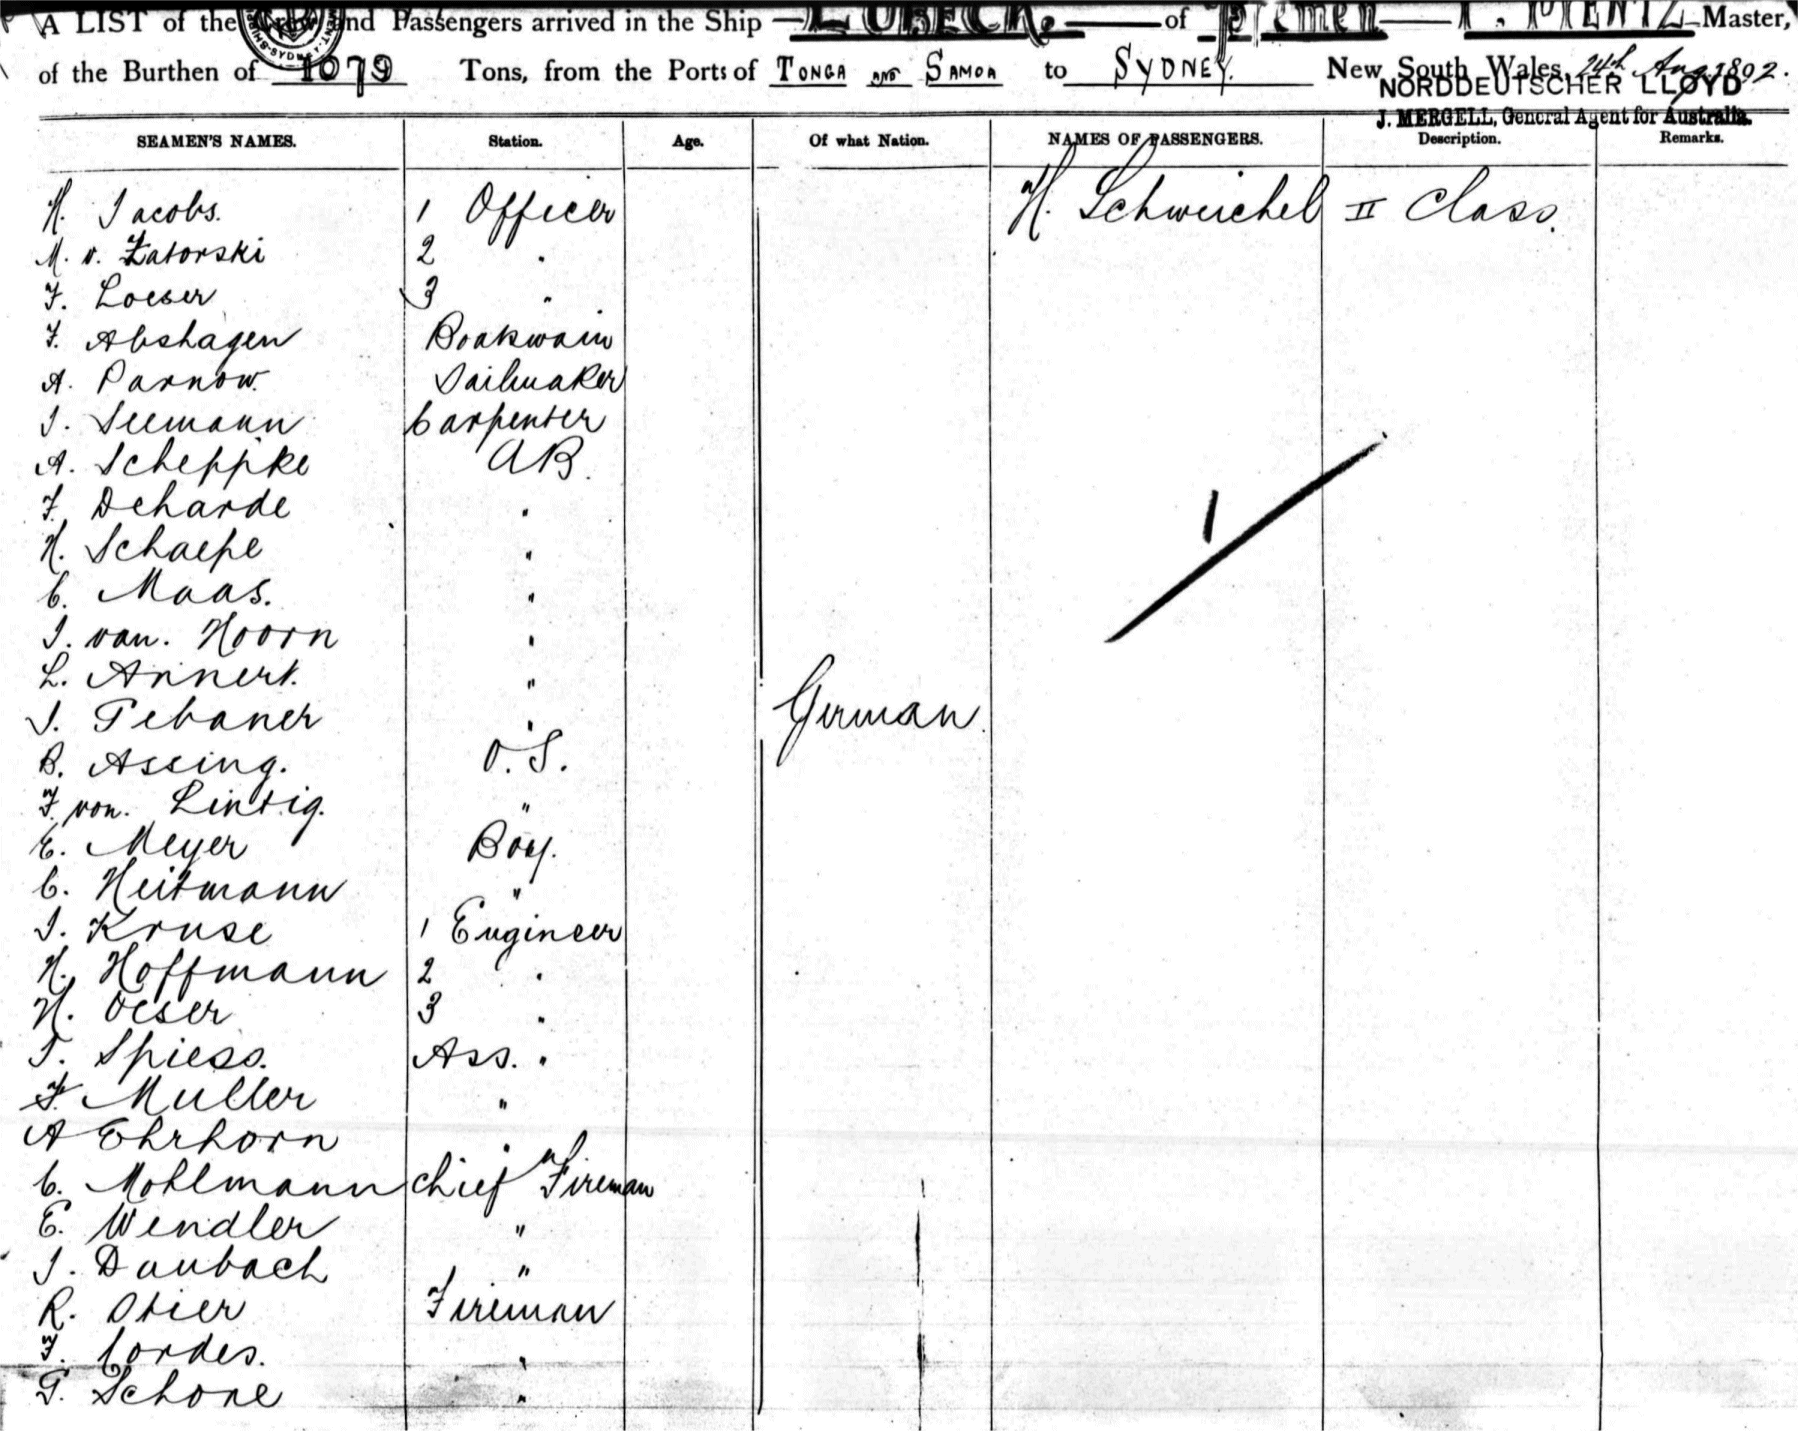 A LIST of the Crew and Passengers arrived in the Ship LÜBECK. of Bremen F. MENTZ Master,
of the Burthen of 1079 Tons, from the Ports of TONGA AND SAMOA to SYDNEY. New South Wales, 24th Aug 1892.
NORDDEUTSCHER LLOYD
J. MERGELL, General Agent for Australia.
SEAMEN'S NAMES. Station. Age. Of what Nation. NAMES OF PASSENGERS. Description. Remarks.
H. Jacobs. 1 Officer H. Schweichel II Class.
M. v. Zatorski 2 "
F. Loeser 3 "
F. Abshagen Boatswain
A. Parnow. Sailmaker
J. Seemann Carpenter
A. Scheppke AB.
F. Deharde "
H. Schaepe "
C. Maas. "
J. van. Hoorn "
L. Annert. "
J. Tebaner " German.
B. Assing. O.S.
F. von. Lintig. "
E. Meyer Boy.
C. Heitmann "
J. Kruse 1 Engineer
H. Hoffmann 2 "
H. Oeser 3 "
T. Spiess. Ass. "
F. Muller "
A Ehrhorn "
C. Mohlmann Chief Fireman
E. Wendler "
J. Daubach "
R. Stier Fireman
F. Cordes. "
G. Schone "